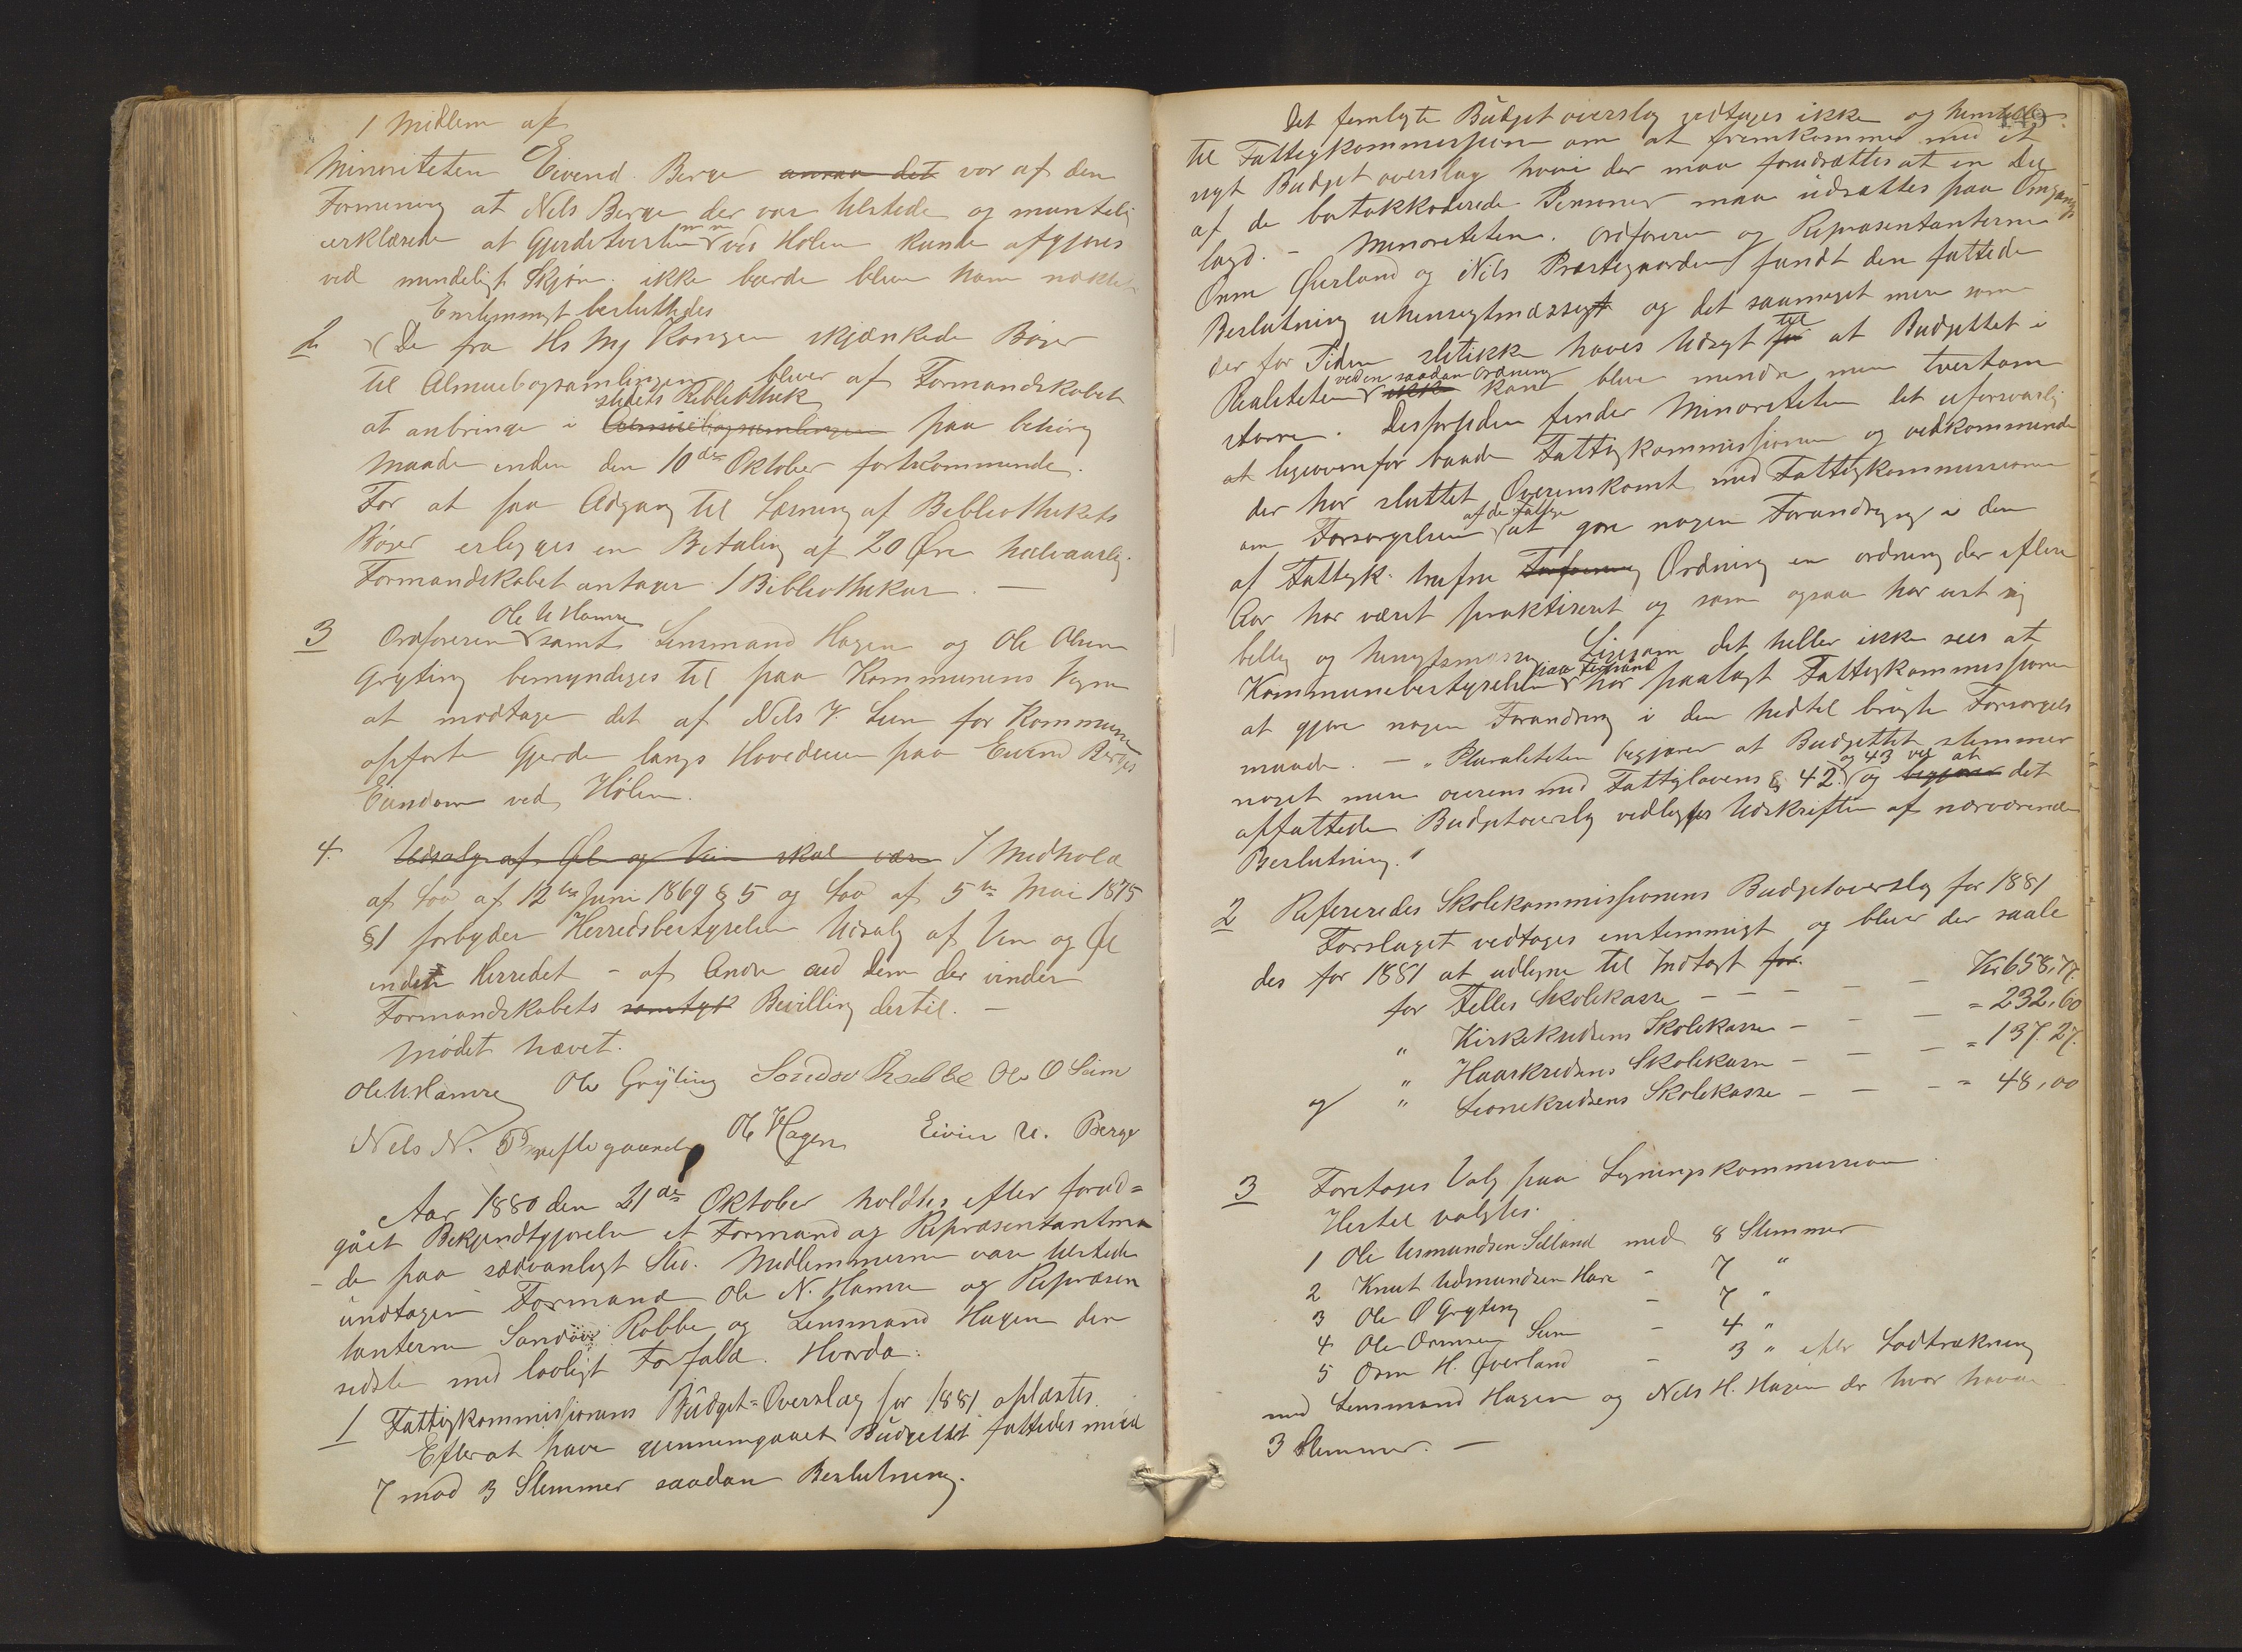 1 Midlem af
Minoriteten Eivend Berge ansaa det var af den
Formening at Nels Berge der var tilstede og muntelig
erklærede at Gjerdetvesten m m ved Hølen kunde afgjøres
ved mindeligt Skjøn. ikke burde blive ham nægtet
Enstemmigt besluttedes
2 De fra Hs Mj Kongen skjænkede Bøger
til Almuebogsamlingen bliver af Formandskabet
at anbringe i Almuebogsamlingen stedets Bibliothek paa behørig
Maade inden den 10de Oktober førstkommende.
For at faa Adgang til Læsning af Bibliothekets
Bøger erlægges en Betaling af 20 Øre halvaarlig.
Formandskabet antager 1 Bibliothekar. —
3 Ordføreren Ole N Hamre samt Lensmand Hagen og Ole Olsen
Gryting bemyndiges til paa Kommunens Vegne
at modtage det af Nels Y. Seim for Kommunen
opførte Gjerde langs Hovedveien paa Eivind Berges
Eiendom ved Hølen.
4. Udsalg af Øl og Vin skal være I Medhold
af Lov af 12te Juni 1869 § 5 og Lov af 5te Mai 1875
§1 forbyder Herredsbestyrelsen Udsalg af Vin og Øl
inden Herredet - af Andre end dem der vinder
Formandskabets samtyk Bevilling dertil. —
Mødet hævet.
Ole N. Hamre Ole Gryting Sondov Rabbe Ole O Seim
Nels N. Prestegaard O Hagen Eivin N. Berge
Aar 1880 den 21de Oktober holdtes efter forud=
gået Bekjendtgjørelse et Formand og Repræsentantmø
- de paa sædvanligt Sted. Medlemmerne vare tilstede
undtagen Formand Ole N. Hamre og Repræsen
tanterne Sondov Rabbe og Lensmand Hagen den
sidste med lovligt Forfald. Hvorda:
1 Fattigkommissionens Budget=Overslag for 1881 oplæstes.
Efter at have gjennemgaaet Budgettet fattedes med
7 mod 3 Stemmer saadan Beslutning.
Det fremlagte Budgetoverslag vedtages ikke og henstilles
til Fattigkommissionen om at fremkomme med et
nyt Budgetoverslag hvori der maa forudsættes at en Del
af de bortakkorderede Personer maa udsættes paa Omgangs
lægd. - Minoriteten. Ordføreren og Repræsentanterne
Orm Øverland og Nils Præstegaarden fandt den fattede
Beslutning uhensigtmæssigt og det saameget mere som
der for Tiden sletikke haves Udsigt for til at Budgettet i
Realiteten ikke ved en saadan Ordning kan blive mindre men tvertom
større. Desforuden finder Minoriteten det uforsvarlig
at ligeoverfor baade Fattigkommissionen og vedkommende
der har sluttet Overenskomst med Fattigkommissionen
om Forsørgelsen af de Fattige at gjøre nogen Forandring i den
af Fattigk. trufne Ordning en ordning der i flere
Aar har været praktiseret og som ogsaa har vist sig
billig og hensigtsmæssig. Ligesom det heller ikke sees at
Kommunebestyrelsen paa Forhånd har paalagt Fattigkommissionen
at gjøre nogen Forandring i den hidtil brugte Forsørgels
maade. — "Pluraliteten begjærer at Budgettet stemmer
noget mere overens med Fattiglovens § 42 og 43 og begjærer ved at det
affattede Budgetoverslag vedlægges Udskriften af nærværende
Beslutning."
2 Refereredes Skolekommissionens Budgetoverslag for 1881
Forslaget vedtages enstemmigt og bliver der saale
des for 1881 at udligne til Indtægt for.
for Felles Skolekasse - - - - - Kr 658,77.
" Kirkekredsens Skolekasse - - - = 232,60
" Haarkredsens Skolekasse - - - = 137.27.
og " Leonekredsens Skolekasse - - - = 48,00
3 Foretages Valg paa Ligningskommission.
Hertil valgtes.
1 Ole Asmundsen Selland med 8 Stemmer
2 Knut Udmundsen Haar - 7 "
3 Ole O Gryting - 7 "
4 Ole Ormsen Seim - 4 "
5 Orm H. Øverland - 3 " efter Lodtrækning
med Lensmand Hagen og Nels H. Hagen der hver havde
3 Stemmer. —